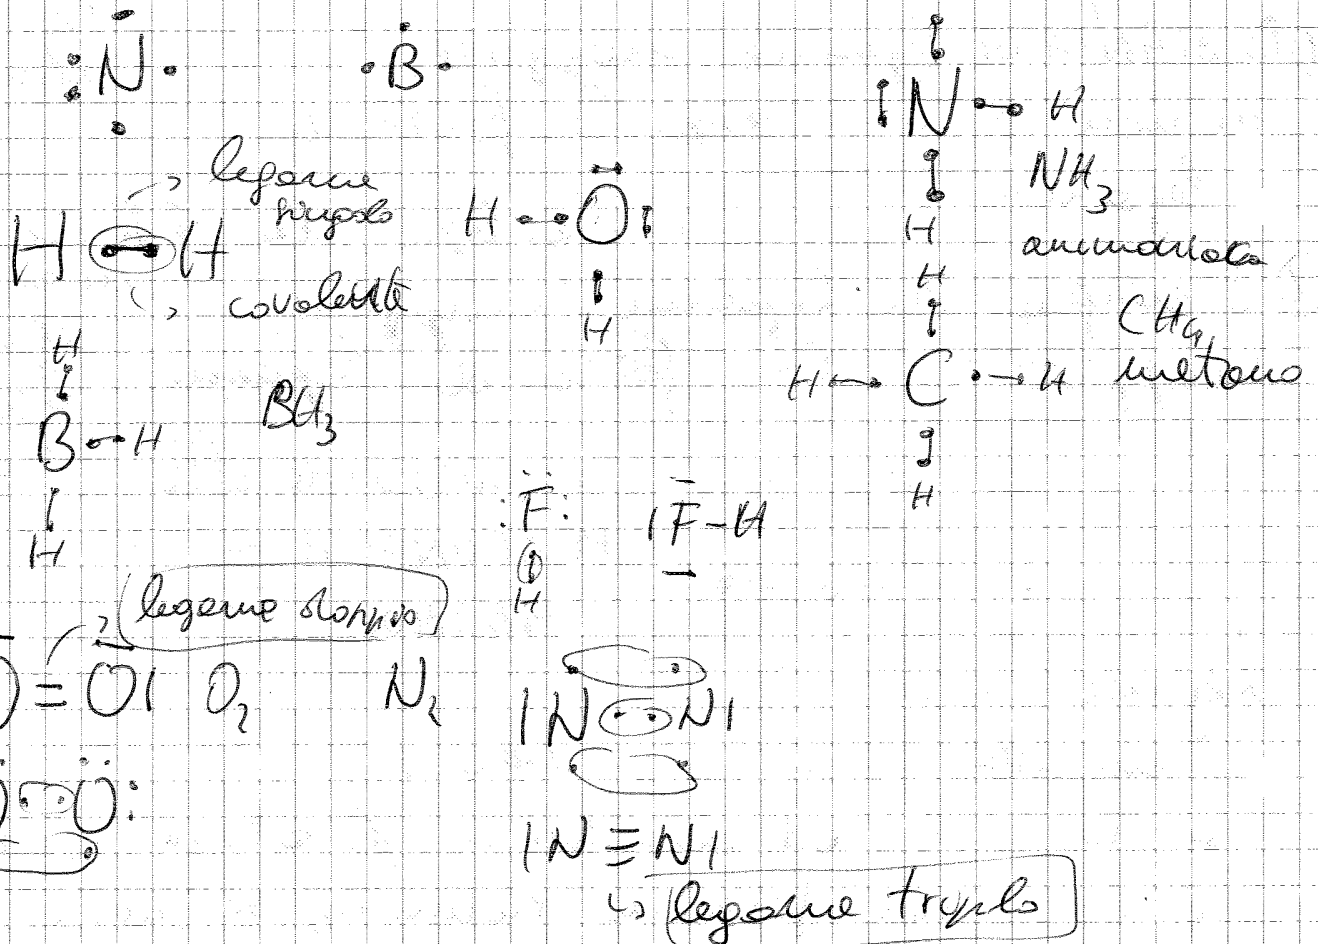 N
B
N H
legame
singolo
H H
covalente
H O
H
NH3
H
ammoniaca
H
B H
H
BH3
H
H C H
H
CH4
metano
F
H
F-H
legame doppio
O=O O2
N2
N N
O O
N≡N
legame triplo